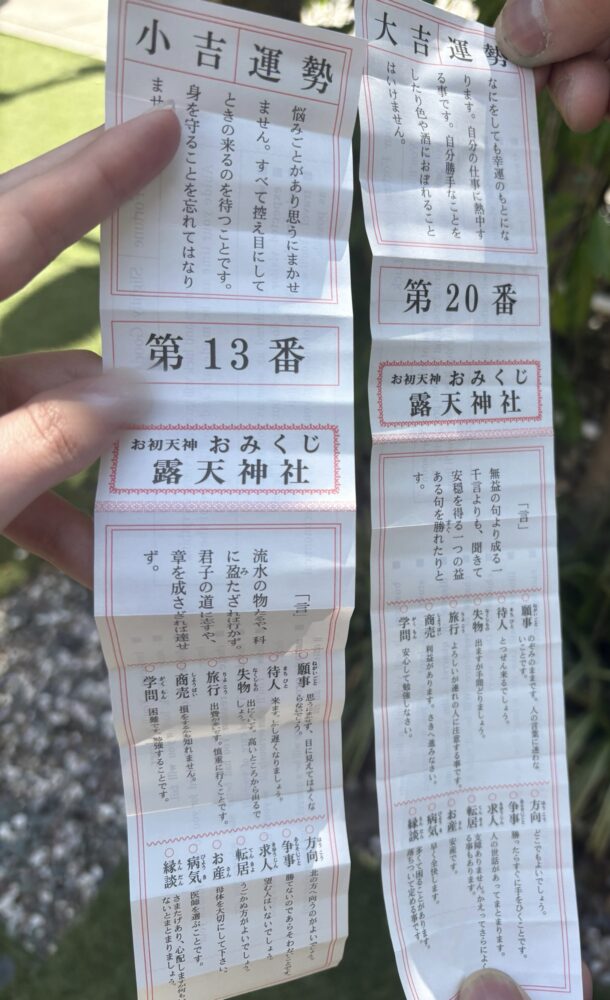 小吉運勢
悩みごとがあり思うにまかせ
ません。すべて控え目にして
ときの来るのを待つことです。
身を守ることを忘れてはなり
ませ
第13番
お初天神 おみくじ
露天神社
「言」
流水の物たるや、科
に盈たざれば行かず。
君子の道に志すや、
章を成さざれば達せ
ず。
願事 思うにまかず、目に見えてはよくな
らないでしょう。
待人 来ます、少し遅くなりましょう。
失物 出にくい。高いところから出るで
しょう。
旅行 出費が多い。慎重に行くことです。
商売 損をするかも知れません。
学問 困難でも勉強することです。
方向 北の方へ向うのがよいでしょう。
争事 勝てないのであらそわないことです
求人 望む人はいないでしょう
転居 うごかぬ方がよいでしょう。
お産 母体を大切にして下さい。
病気 医師を選ぶことです。
縁談 さまたげあり、心配しますが何も
ないとまとまりましょう。
大吉運勢
なにをしても幸運のもとにな
ります。自分の仕事に熱中す
る事です。自分勝手なことを
したり色や酒におぼれること
はいけません。
第20番
お初天神 おみくじ
露天神社
「言」
無益の句より成る一
千言よりも、聞きて
安穏を得る一つの益
ある句を勝れたりと
す。
願事 のぞみのままです。人の言葉に迷わな
いことです。
待人 とつぜん来るでしょう。
失物 出ますが手間どりましょう。
旅行 よろしいが連れの人に注意する事です。
商売 利益があります。さきへ進みなさい。
学問 安心して勉強しなさい。
方向 どこでもよいでしょう。
争事 勝ったらすぐに手をひくことです。
求人 人の世話があってまとまります。
転居 支障ありません。かえってさらによく
なる事もあります。
お産 安産です。
病気 早く全快します。
縁談 多くて困ることがあります。
落ちついて定める事です。